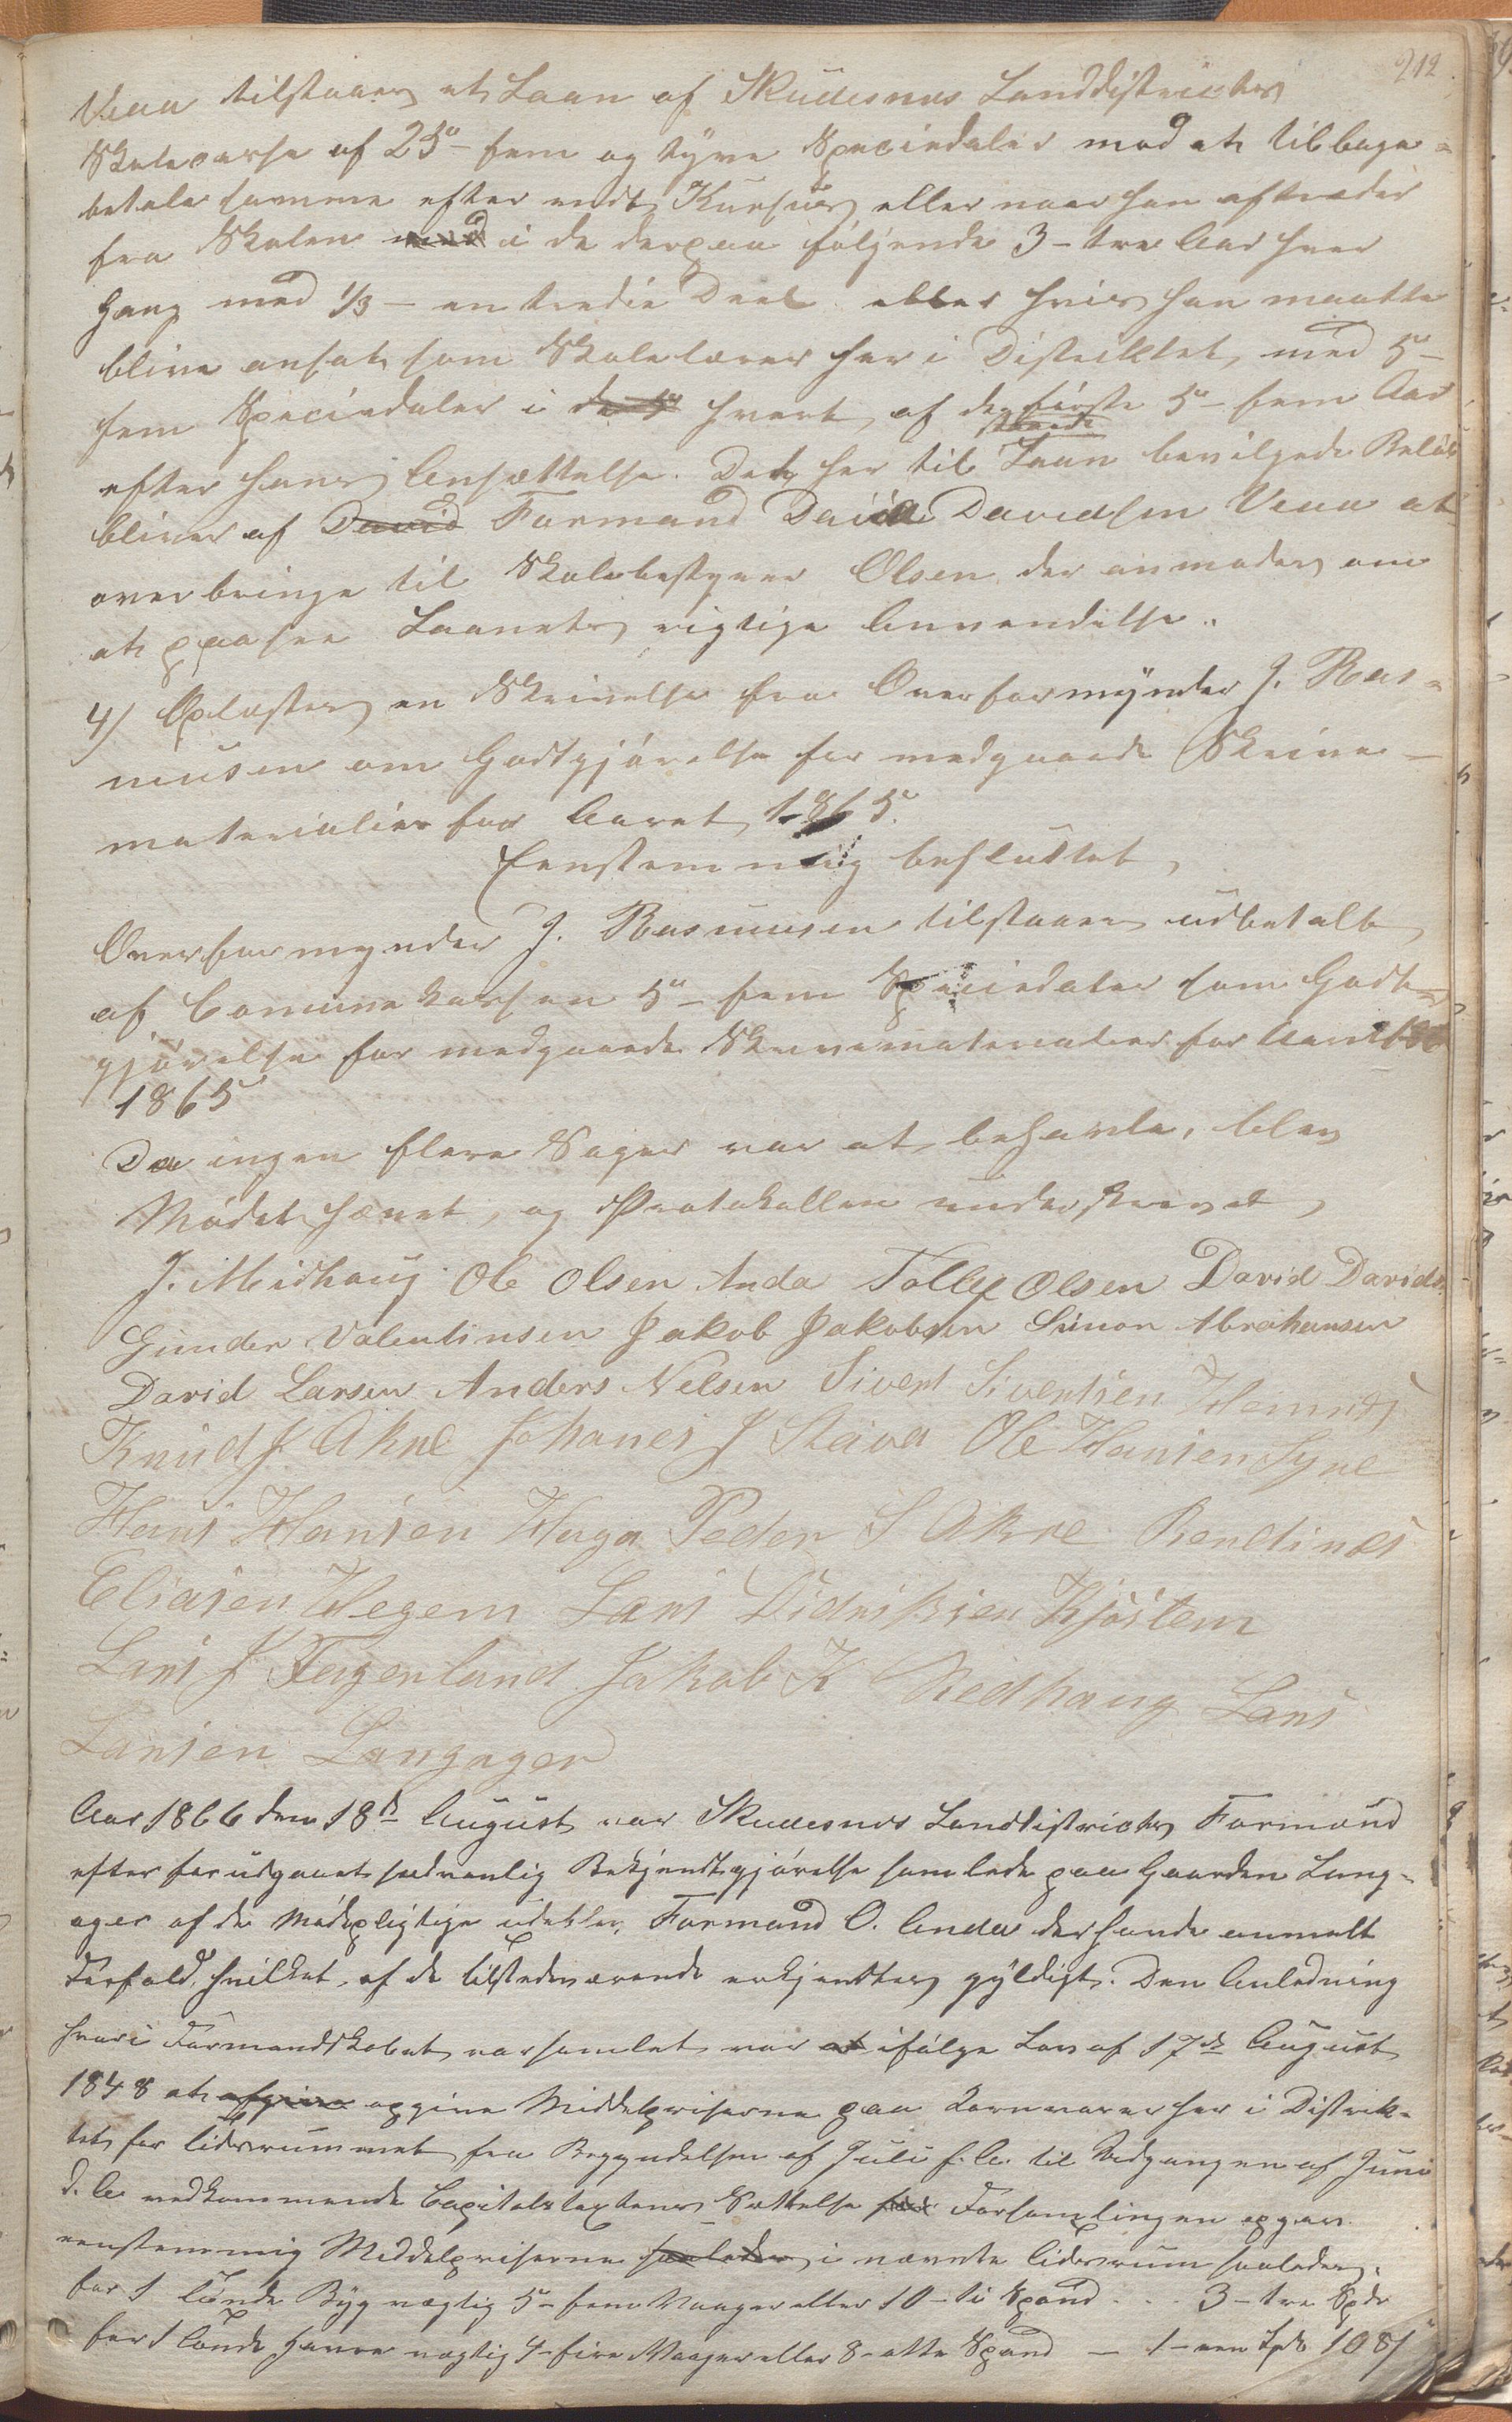 212
Veaa tilstaaes et Laan af Skudesnæs Landdistricts
Skolecasse af 25 - fem og tyve Speciedaler mod at tilbage-
betale samme efter endt Kursus eller naar han aftræder
fra Skolen med i de derpaa følgende 3 - tre Aar hver
Gang med 1/3 - en tredie Deel eller hvis han maatte
blive ansat som Skolelærer her i Distriktet, med 5 -
fem Speciedaler i de 5 hvert af de første 5 - fem Aar
efter hans Ansættelse. Det her til Laan bevilgede Beløb
bliver af David Formand David Davidsen Veaa at
overbringe til Skolebestyrer Olsen der anmodes om
at paasee Laanets rigtige Anvendelse.
4/ Oplæstes en Skrivelse fra Overformynder J. Ras-
musen om Godtgjørelse for medgaaede Skrive-
materialier for Aaret 1865.
Eenstemmig besluttet,
Overformynder J. Rasmusen tilstaaes udbetalt
af Communekassen 5 - fem Speciedaler som Godt-
gjørelse for medgaaede Skrivematerialier for Aaret 186
1865
Da ingen flere Sager var at behandle, blev
Mødet hævet, og Protokollen underskrevet,
J. Midhaug Ole Olsen Anda Tollef Olsen David Davids.
Gunder Valentinsen Jakob Jakobsen Simon Abrahamsen
David Larsen Anders Nelsen Sivert Sivertsen Hemnes
Knud J. Akre Johanes J Stava Ole Hansen Syre
Hans Hansen Haga Peder S Akre Bendines
Eliasen Hegem Lars Didriksen Kjøstem
Lars J Fagerland Jakob K Medhaug Lars
Larsen Langager
Aar 1866 den 18de August var Skudesnæs Landdistricts Formænd
efter forudgaaet sædvanlig Bekjendtgjørelse samlede paa Gaarden Lang-
ager af de Mødepligtige udeblev Formand O. Anda der havde anmelt
Forfald, hvilket af de tilstedeværende erkjendtes gyldigt. Den Anledning
hvori Formandskabet var samlet var at ifølge Lov af 17de August
1848 at afgive opgive Middelpriserne paa Kornvarer her i Distrik-
tet for Tidsrummet fra Begyndelsen af Juli f. A. til Udgangen af Juni
d. A. vedkommende Capitelstaxtens Sættelse Forsamlingen opgav
eenstemmig Middelpriserne saaledes i nævnte Tidsrum saaledes.
for 1 Tønde Byg vægtig 5 - fem Vaager eller 10 - ti Spand . . . 3 - tre Spd
for 1 Tønde Havre vægtig 4 - fire Vaager eller 8 - otte Spand — 1 - een Spd 108/